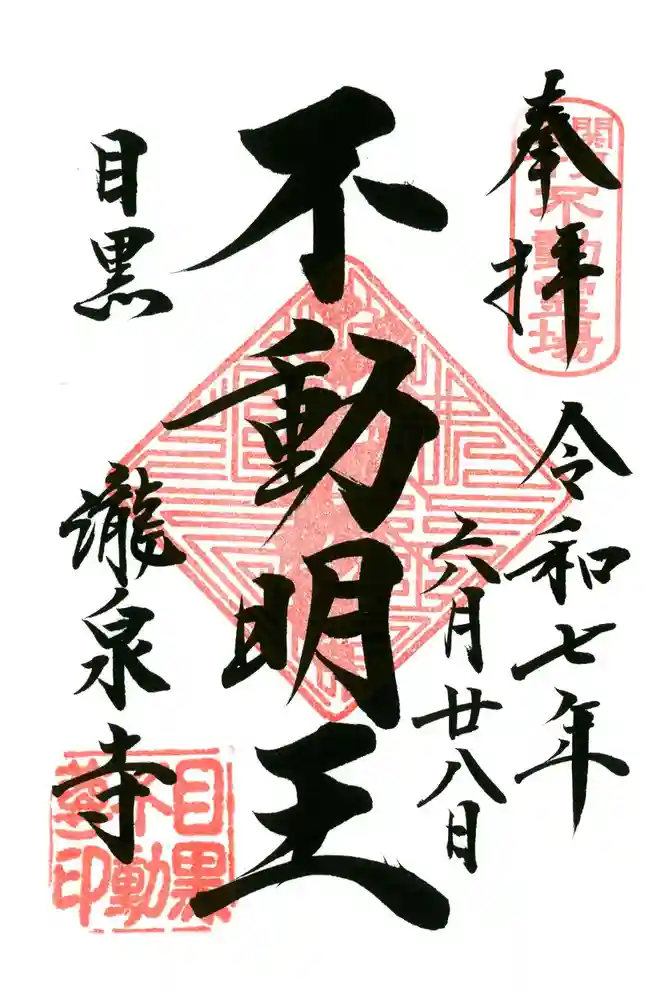 奉拝
關東不動霊場
令和七年
六月廿八日
不動明王
目黒
瀧泉寺
目黒
不動
印